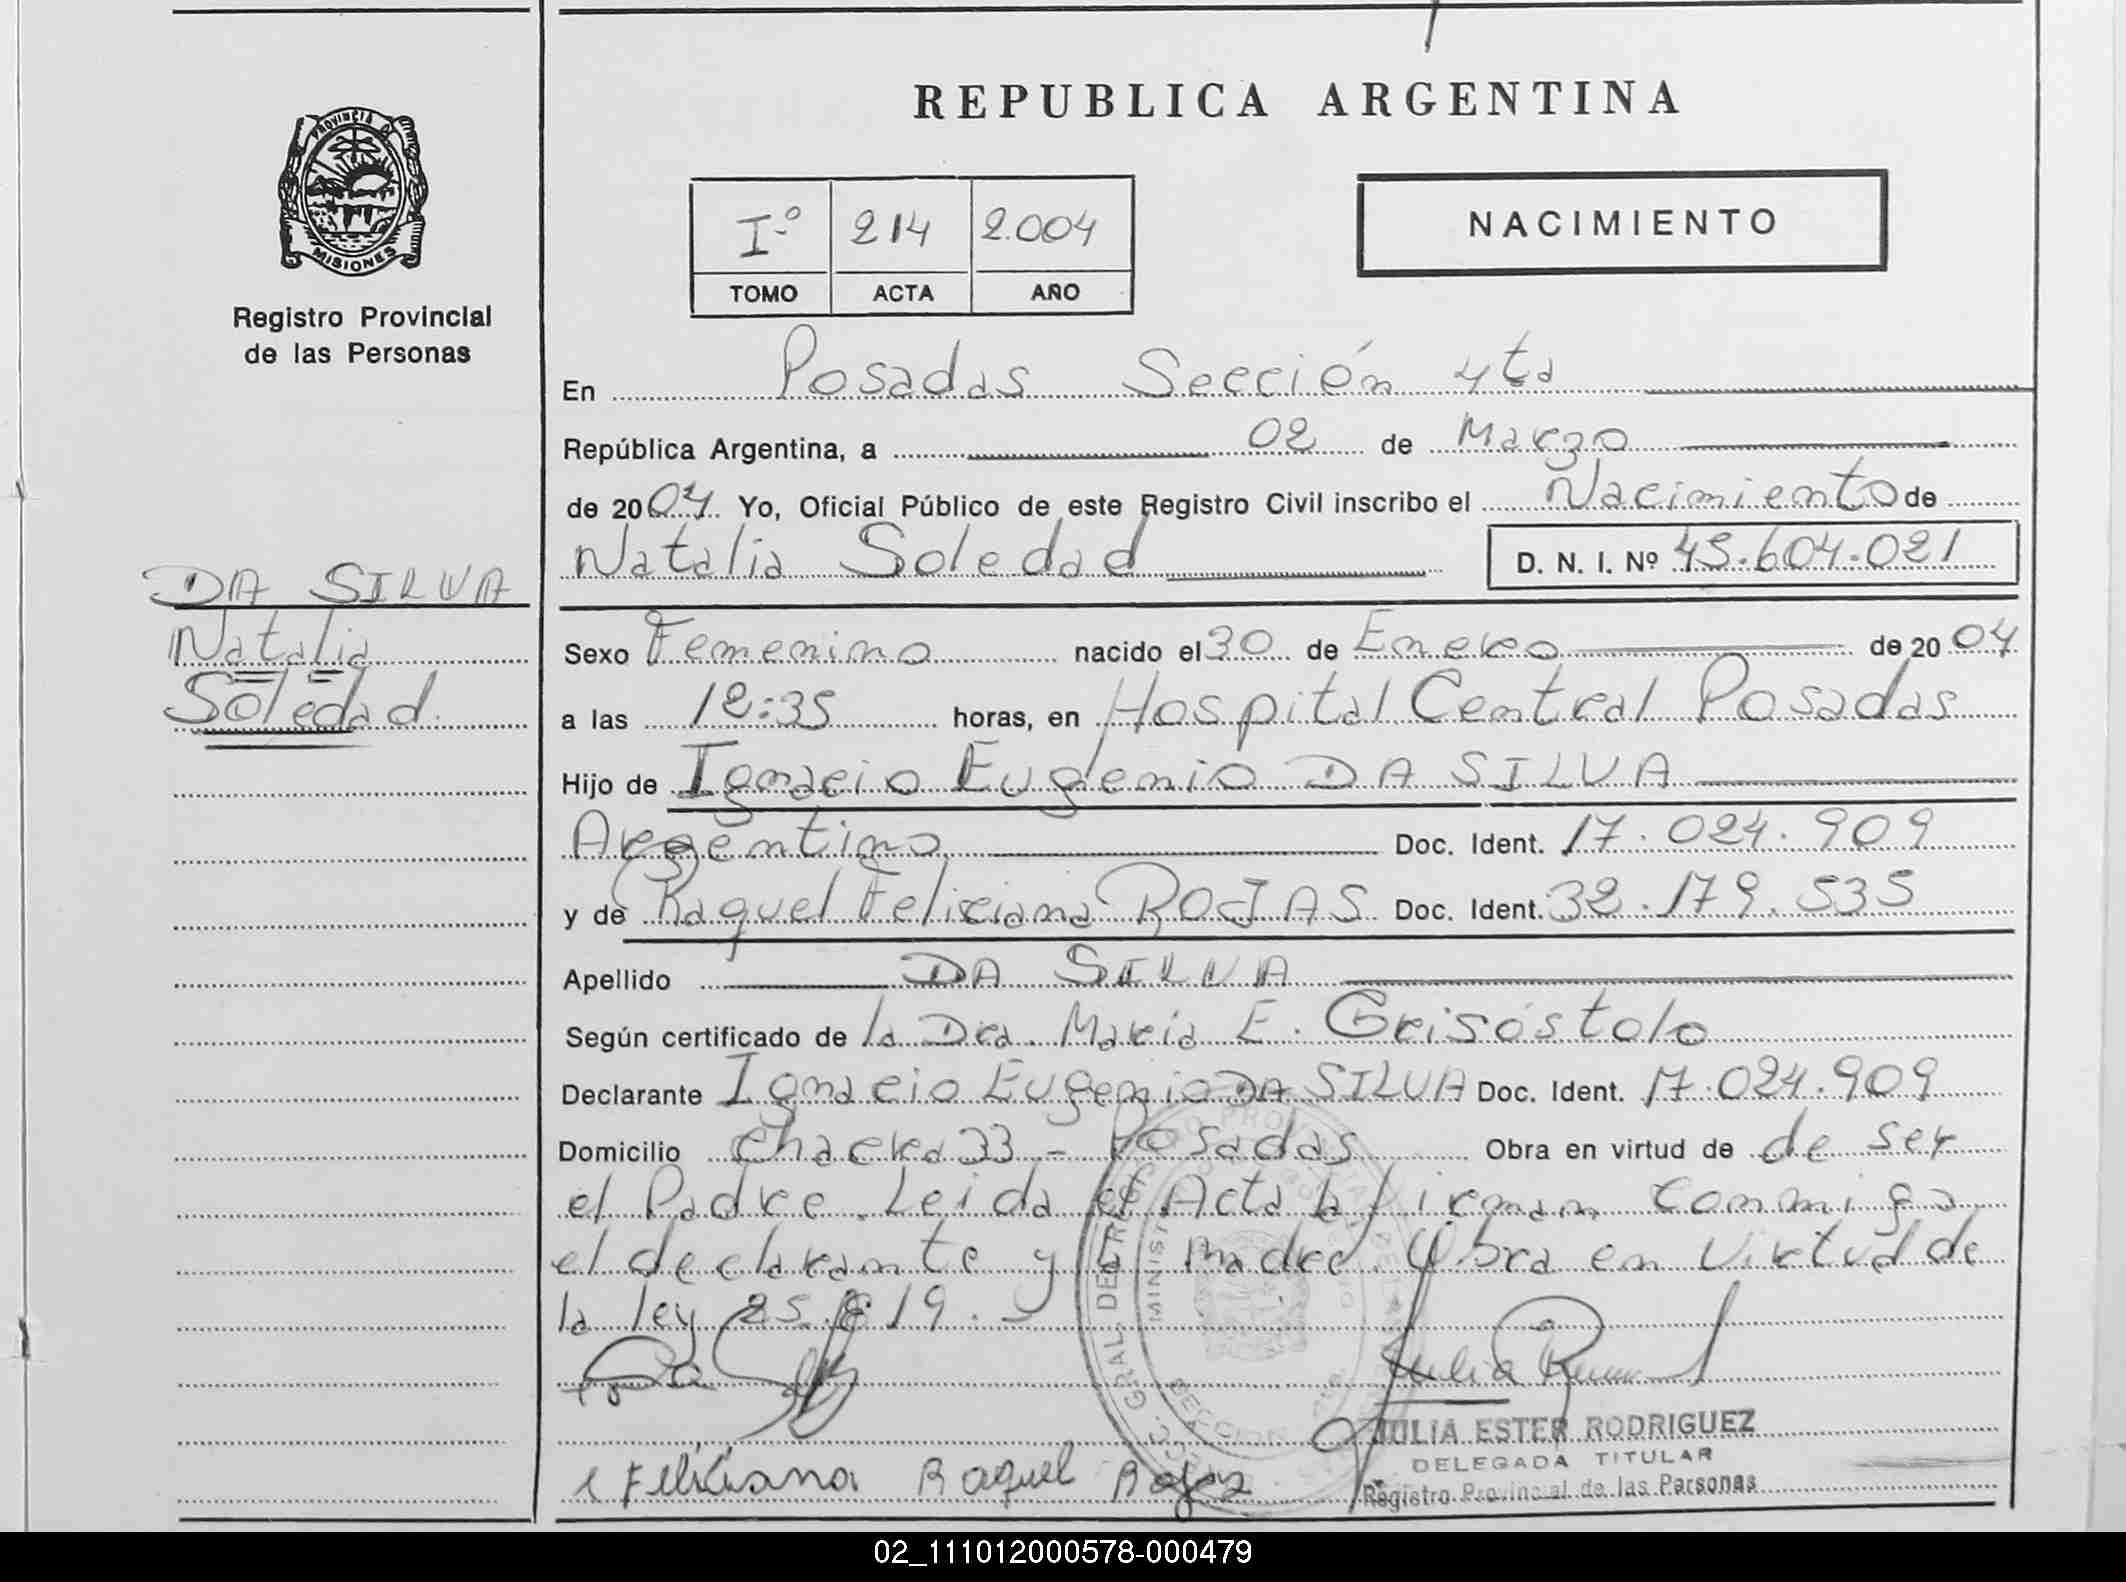 REPUBLICA ARGENTINA
PROVINCIA D
MISIONES
Registro Provincial
de las Personas
Iº 214 2.004
TOMO ACTA AÑO
NACIMIENTO
En Posadas Sección 4ta
República Argentina, a 02 de Marzo
de 2004. Yo, Oficial Público de este Registro Civil inscribo el Nacimiento de
Natalia Soledad D. N. I. Nº 45.604.021
DA SILVA
Natalia
Soledad
Sexo Femenino nacido el 30 de Enero de 2004
a las 12:35 horas, en Hospital Central Posadas
Hijo de Ignacio Eugenio DA SILVA
Argentino Doc. Ident. 17.024.909
y de Raquel Feliciana ROJAS Doc. Ident. 32.179.535
Apellido DA SILVA
Según certificado de la Dra. María E. Grisóstolo
Declarante Ignacio Eugenio DA SILVA Doc. Ident. 17.024.909
Domicilio Chacra 33 - Posadas Obra en virtud de de ser
el Padre. Leida el Acta la firman conmigo
el declarante y la madre. Obra en virtud de
la ley 25.819.
JULIA ESTER RODRIGUEZ
DELEGADA TITULAR
Registro Provincial de las Personas
Feliciana Raquel Rojas
02_111012000578-000479